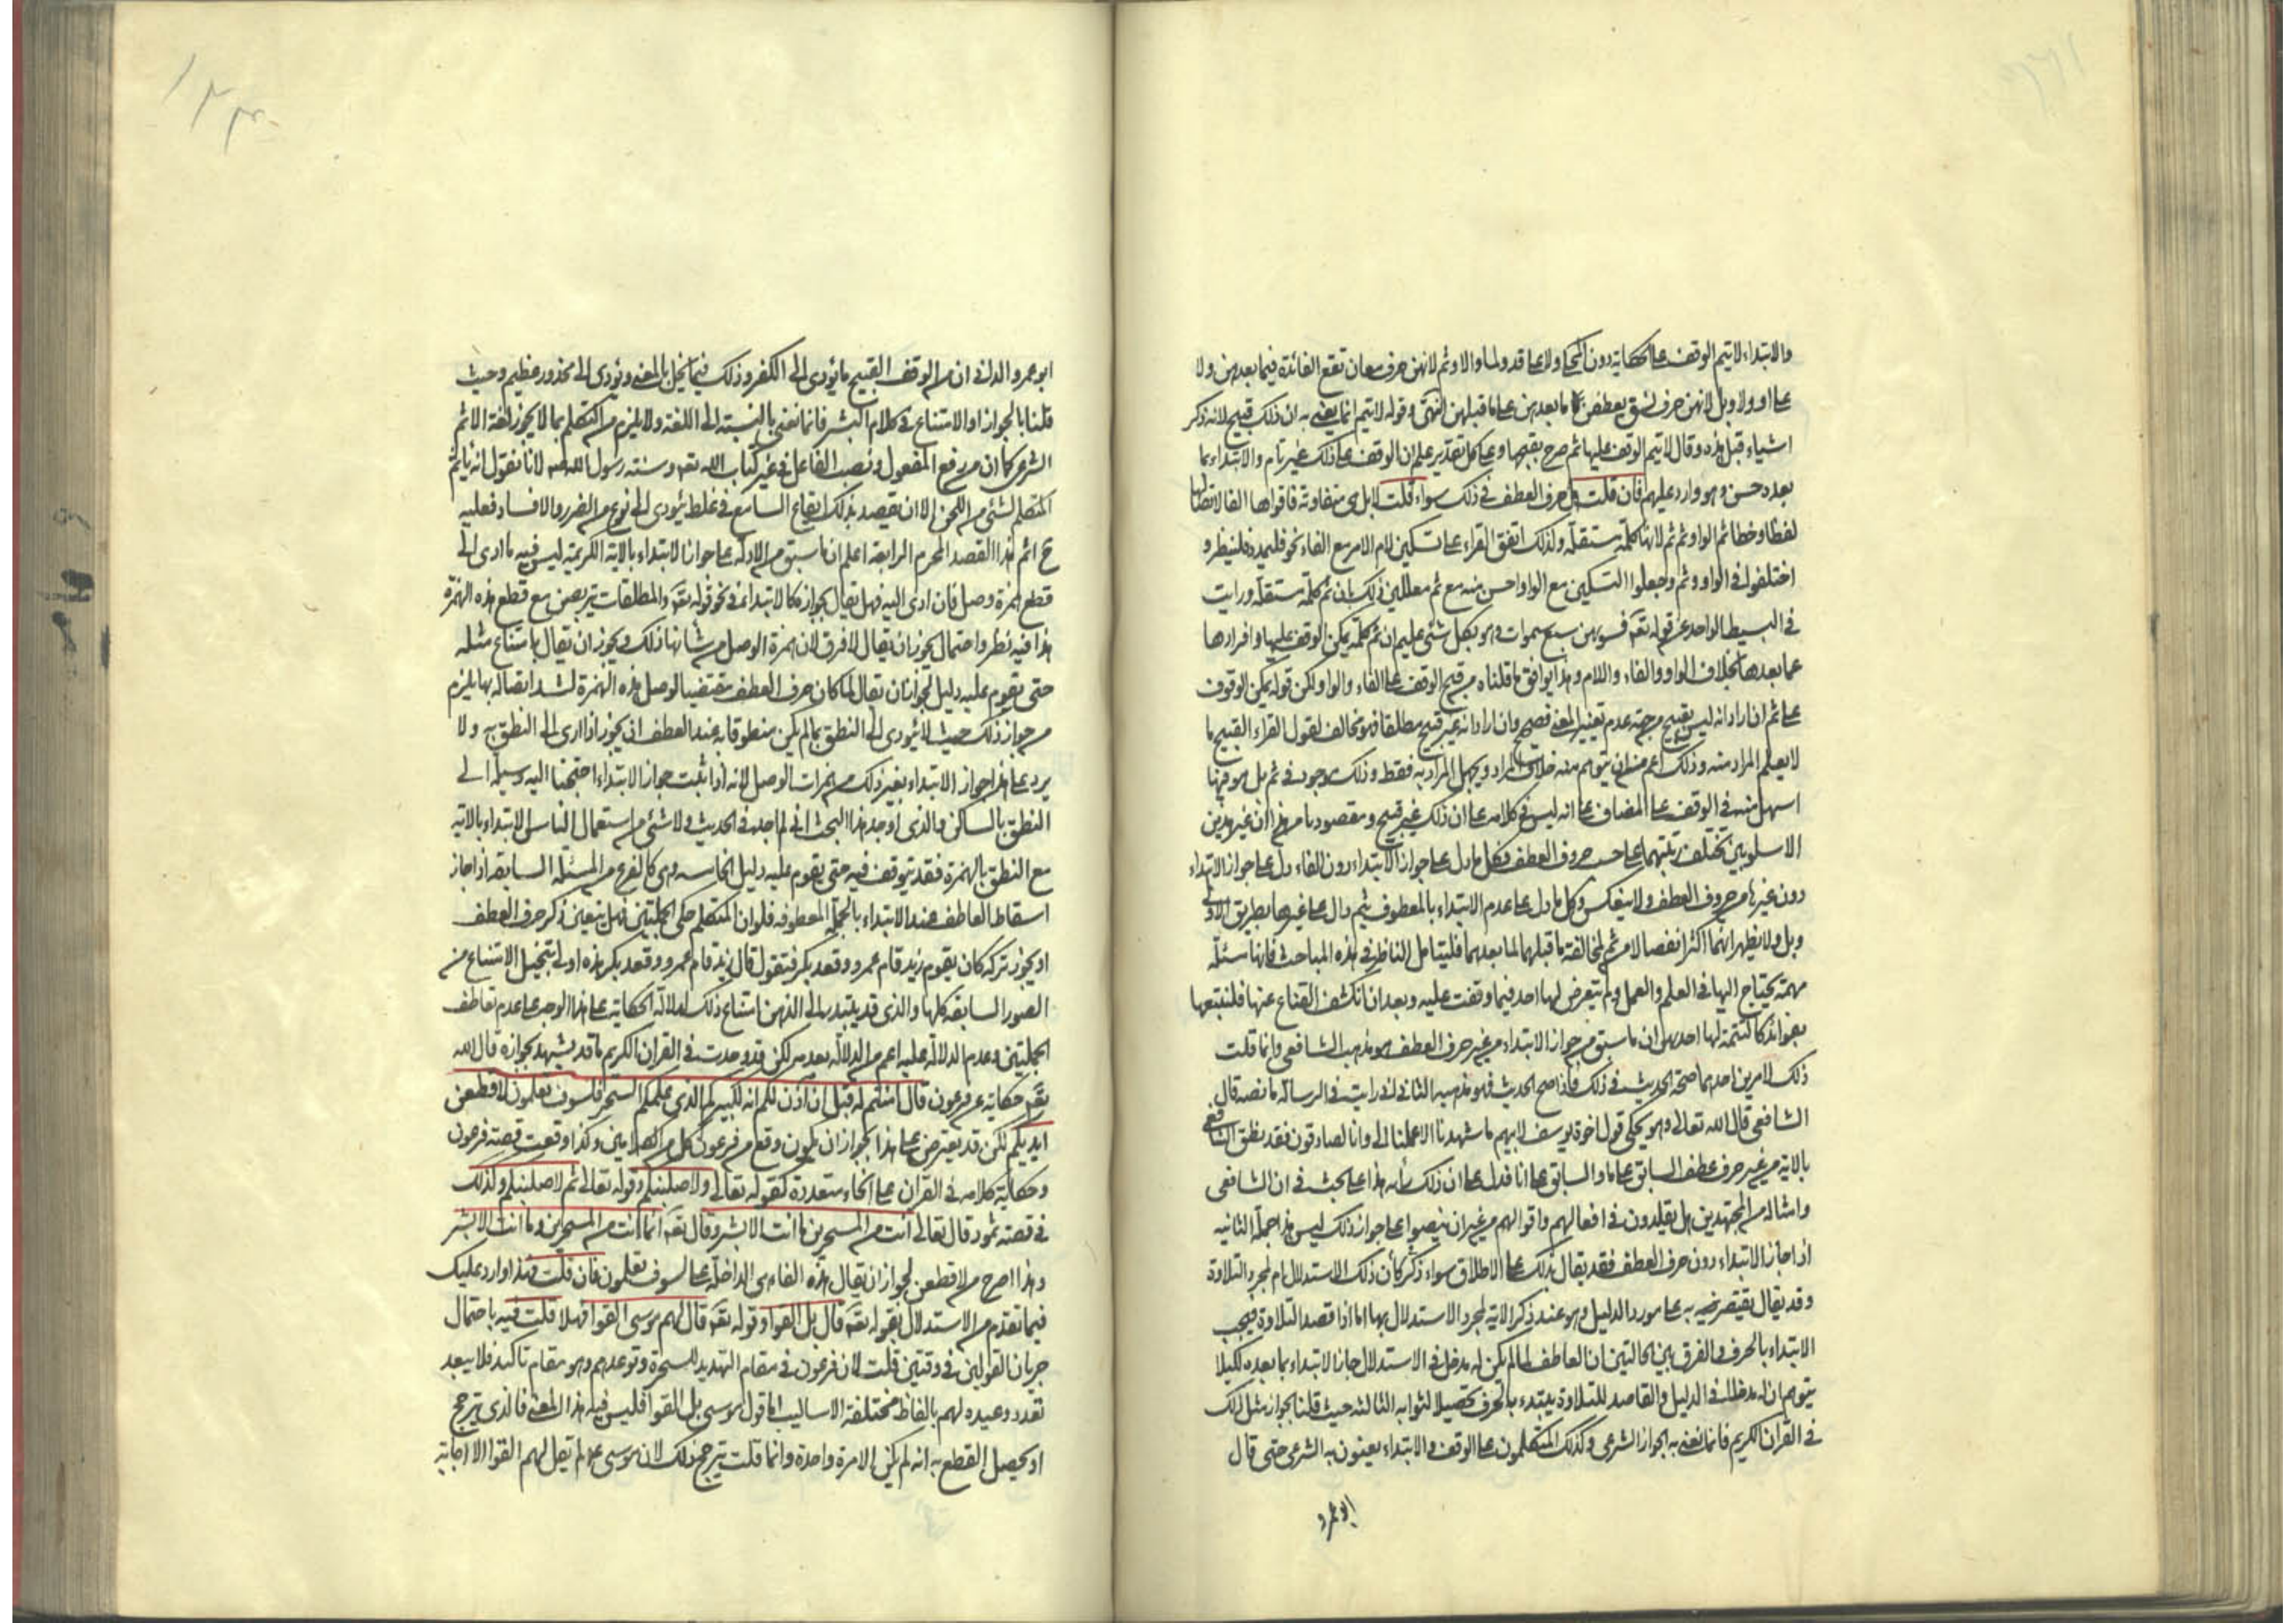 والابتداء لا يتم الوقف على الحكاية دون المحكي ولا على قد ولما والا وثم لانهن حرف معان تقع الفائدة فيما بعدهن ولا
على او ولا وبل لانهن حرف نسق يعطفن ما بعدهن على ما قبلهن انتهى وقوله لا يتم انما يعني به ان ذلك قبيح لانه ذكر
اشياء قبل هذه وقال لا يتم الوقف عليها ثم صرح بقبحها وعلى كل تقدير علم ان الوقف على ذلك غير تام والابتداء بما
بعده حسن وهو وارد عليهم فان قلت هل حرف العطف في ذلك سواء قلت لا بل هي متفاوتة فاقواها الفا لاتصالها
لفظا وخطا ثم الواو ثم ثم لانها كلمة مستقلة ولذلك اتفق القراء على تسكين لام الامر مع الفاء نحو فليمدد فلينظر و
اختلفوا في الواو وثم وجعلوا التسكين مع الواو احسن منه مع ثم معللين ذلك بان ثم كلمة مستقلة ورايت
في البسيط للواحد عن قوله تعـ فسويهن سبع سموات وهو بكل شئ عليم ان ثم كلمة يمكن الوقف عليها وافرادها
عما بعدها بخلاف الواو والفاء واللام وهذا يوافق ما قلناه من قبح الوقف على الفاء والواو ولكن قوله يمكن الوقوف
على ثم ان اراد انه ليس بقبيح من جهة عدم تغيير المعنى فصحيح وان اراد انه غير قبيح مطلقا فهو مخالف لقول القراء القبيح ما
لا يعلم المراد منه وذلك اعم من ان يتوهم منه خلاف المراد ويجهل المراد به فقط وذلك موجود في ثم بل هو فيها
اسهل منه في الوقف على المضاف على انه ليس في كلامه على ان ذلك غير قبيح ومقصودنا من هذا ان غير هذين
الاسلوبين تختلف رتبتهما على حسب حروف العطف فكل ما دل على جواز الابتداء دون الفاء دل على جواز الابتداء
دون غيرها من حروف العطف ولا ينعكس وكل ما دل على عدم الابتداء بالمعطوف بثم دال على غيرها بطريق الاولى
وبل ولا يظهر انهما اكثر انفصالا من ثم لمخالفة ما قبلهما لما بعدهما فليتامل الناظر في هذه المباحث فانها مسئلة
مهمة يحتاج اليها في العلم والعمل ولم يتعرض لها احد فيما وقفت عليه وبعد ان انكشف القناع عنها فلنتبعها
بفوائد كالتتمة لها احدهن ان ما سبق من جواز الابتداء من غير حرف العطف هو مذهب الشافعي وانما قلت
ذلك لامرين احدهما صحة الحديث في ذلك فاذا صح الحديث فهو مذهبه الثاني اني رايت في الرسالة ما نصه قال
الشافعي قال الله تعالى وهو يحكي قول اخوة يوسف لابيهم ما شهدنا الا بما علمنا الى وانا لصادقون فقد نطق الشافعي
بالاية من غير حرف عطف السابق على ما والسابق على انا فدل على ان ذلك رأيه هذا على بحث في ان الشافعي
وامثاله من المجتهدين هل يقلدون في افعالهم واقوالهم من غير ان ينصوا على جواز ذلك ليس هذا محله الثانيه
اذا جاز الابتداء دون حرف العطف فقد يقال بذلك على الاطلاق سواء ذكر كأن ذلك الاستدلال ام لمجرد التلاوة
وقد يقال يقتصر فيه به على مورد الدليل وهو عند ذكر الاية لمجرد الاستدلال بها اما اذا قصد التلاوة فيجب
الابتداء بالحرف والفرق بين الحالتين ان العاطف لما لم يكن له مدخل في الاستدلال جاز الابتداء بما بعده لكيلا
يتوهم ان له مدخلا في الدليل والقاصد للتلاوة يبتدء بالحرف تحصيلا لثوابه الثالثه حيث قلنا بجواز مثل ذلك
في القران الكريم فانما نعني به الجواز الشرعي وكذلك المتكلمون على الوقف والابتداء يعنون به الشرعي حتى قال
ابو عمرو
ابو عمرو الداني ان من الوقف القبيح ما يؤدي الى الكفر وذلك فيما يخل بالمعنى ويؤدي الى محذور عظيم وحيث
قلنا بالجواز او الامتناع في كلام البشر فانما نعني بالنسبة الى اللغة ولا يلزم من التكلم بما لا يجوز لغة الاثم
الشرعي كما ان من رفع المفعول ونصب الفاعل في غير كتاب الله تعـ وسنة رسول الله لانا نقول انه يأثم
المتكلم لشئ من اللحن الا ان يقصد بذلك ايقاع السامع في غلط يؤدي الى نوع من الضرر والافساد فعليه
ح اثم هذا القصد المحرم الرابعة اعلم ان ما سبق من الادلة على جواز الابتداء بالاية الكريمة ليس فيه ما ادى الى
قطع همزة وصل فان ادى اليه فهل يقال بجوازه كالابتداء في نحو قوله تعـ والمطلقات يتربصن مع قطع هذه الهمزة
هذا فيه نظر واحتمال يجوز ان يقال لا فرق لان همزة الوصل من شانها ذلك ويجوز ان يقال بامتناع مثله
حتى يقوم عليه دليل لجواز ان يقال لما كان حرف العطف مقتضيا لوصل هذه الهمزة لشدة اتصاله بها يلزم
من جواز ذلك حيث لا يؤدي الى النطق بما لم يكن منطوقا به عند العطف ان يجوز اذا ادى الى النطق به ولا
يرد على هذا جواز الابتداء بغير ذلك من همزات الوصل لانه اذا ثبت جواز الابتداء احتجنا اليه وسيلة الى
النطق بالساكن والذي اوجد هذا البحث اني لم اجد في الحديث ولا شئ من استعمال الناس الابتداء بالاية
مع النطق بالهمزة فقد يتوقف فيه حتى يقوم عليه دليل الخامسه وهي كالفرع من المسئلة السابقة اذا جاز
اسقاط العاطف عند الابتداء بالجملة المعطوفه فلو ان المتكلم حكى الجملتين فهل يتعين ذكر حرف العطف
او يجوز تركه كان يقوم زيد قام عمرو وقعد بكر فتقول قال زيد قام عمرو وقعد بكر هذه اولى بتخيل الامتناع من
الصور السابقة كلها والذي قد يبتدر الى الذهن امتناع ذلك لدلالة الحكاية على هذا الوجه على عدم تعاطف
الجملتين وعدم الدلالة عليه اعم من الدلالة بعدمه لكن قد وجدت في القران الكريم ما قد يشهد بجوازه قال الله
تعـ حكاية عن فرعون قال امنتم له قبل ان آذن لكم انه لكبيركم الذي علمكم السحر فلسوف تعلمون لاقطعن
ايديكم لكن قد يعترض على هذا بجواز ان يكون وقع من فرعون كل من الكلامين وكذا وقعت قصة فرعون
وحكاية كلامه في القران على انحاء متعددة كقوله تعالى ولاصلبنكم وقوله تعالى ثم لاصلبنكم ولذلك
في قصة ثمود قال تعالى انت من المسحرين ما انت الا بشر وقال تعـ انما انت من المسحرين وما انت الا بشر
وهذا اصرح من لاقطعن لجواز ان يقال هذه الفاء هي الداخلة على لسوف تعلمون فان قلت فهذا وارد عليك
فيما تقدم من الاستدلال بقوله تعـ قال بل القوا وقوله تعـ قال لهم موسى القوا فهلا قلت فيه باحتمال
جريان القولين في وقتين قلت لان فرعون في مقام التهديد للسحرة وتوعدهم وهو مقام تاكيد فلا يبعد
تعدد وعيده لهم بالفاظ مختلفة الاساليب اما قول موسى بل القوا فليس فيه هذا المعنى فالذي يترجح
او يحصل القطع به انه لم يكن الا مرة واحدة وانما قلت يترجح ذلك لان موسى عم لم يقل لهم القوا الا اجابة